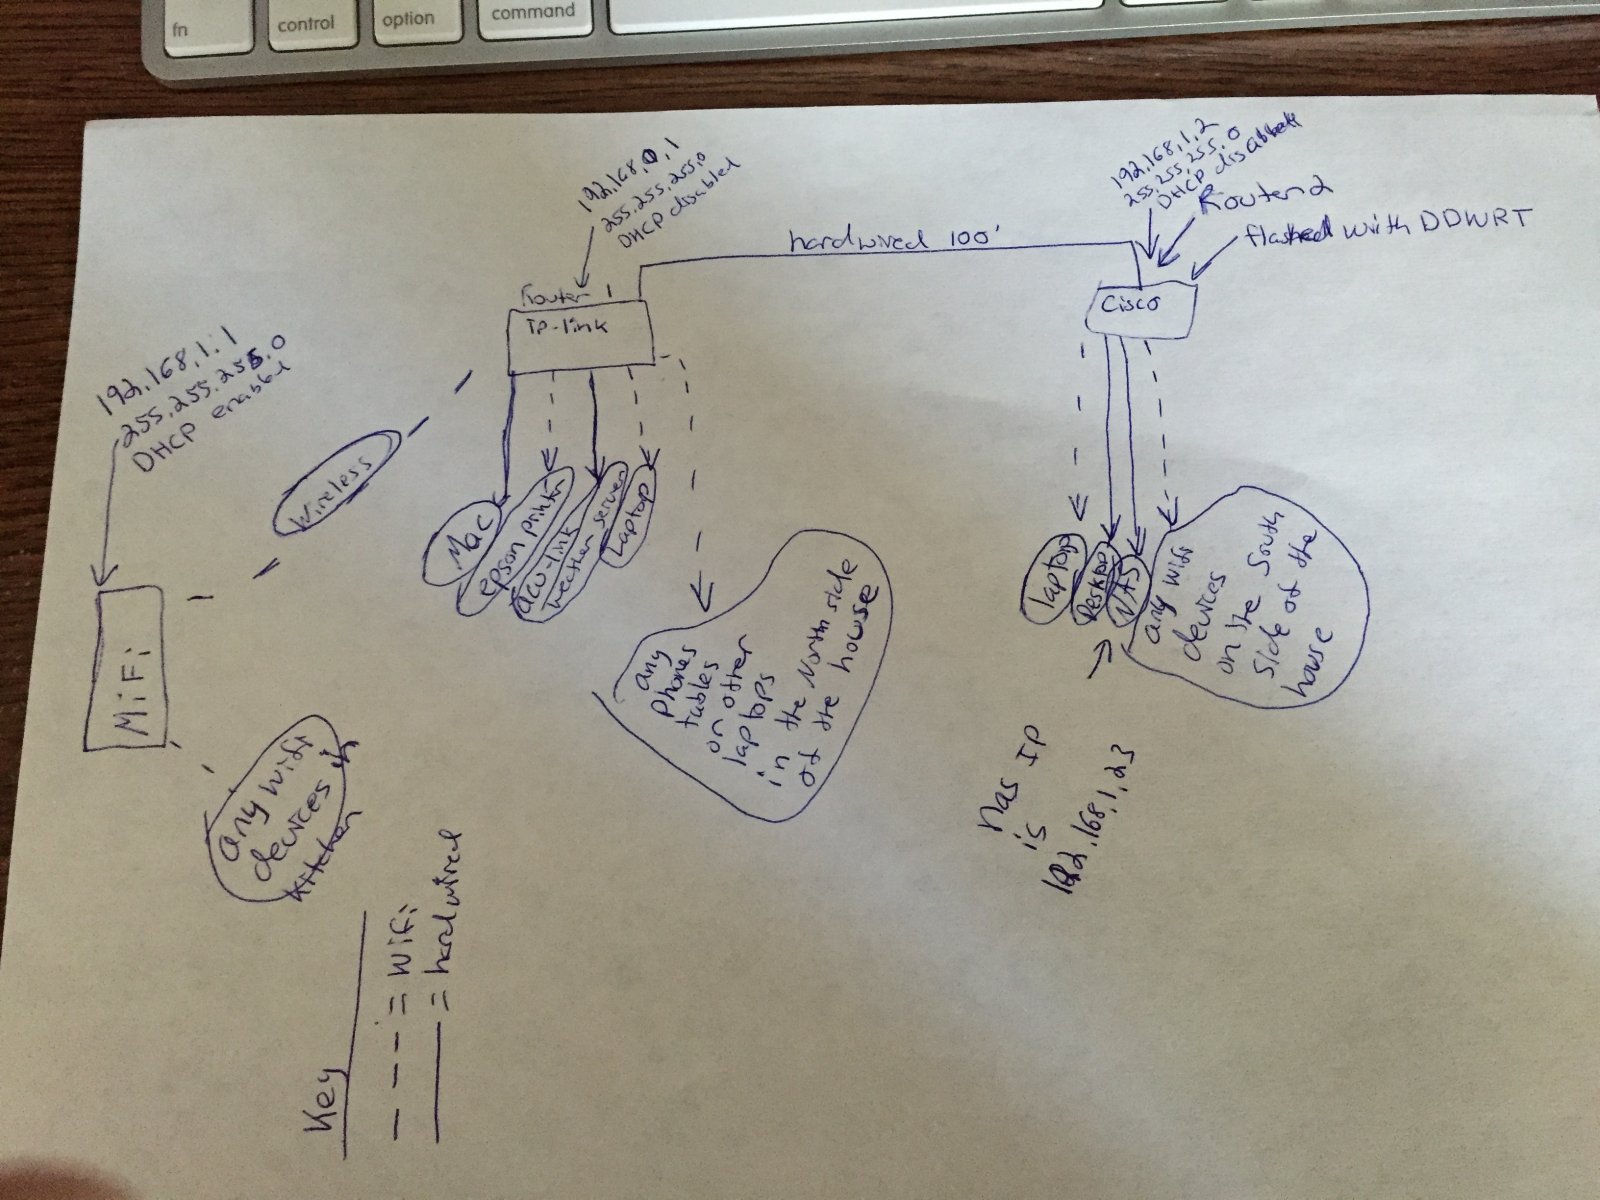 fn
control
option
command
192.168.0.1
255.255.255.0
DHCP disabled
192.168.1.2
255.255.255.0
DHCP disabled
Router 2
flashed with DDWRT
hardwired 100'
Router 1
TP-link
Cisco
192.168.1.1
255.255.255.0
DHCP enabled
Wireless
MiFi
Mac
epson printer
acu-link
weather server
Laptop
laptop
Desktop
NAS
any wifi
devices
on the South
Side of the
house
any
phones
tables
or other
laptops
in the North side
of the house
any wifi
devices in
kitchen
nas IP
is
192.168.1.23
Key
---- = wifi
—— = hardwired